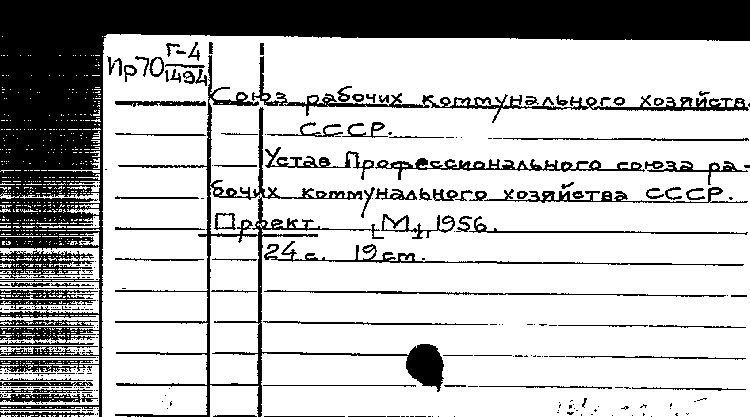 Пр70 Г-4
1494
Союз рабочих коммунального хозяйства
СССР.
Устав Профессионального союза ра-
бочих коммунального хозяйства СССР.
Проект. [М.], 1956.
24 с. 19 см.